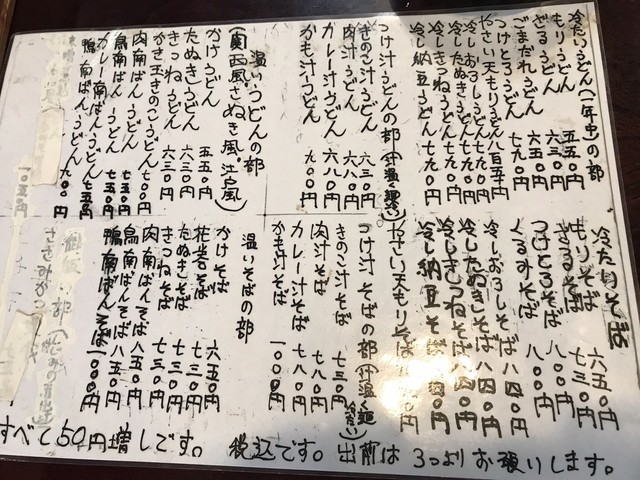 冷たいうどん(一年中)の部
もりうどん 五五〇円
ざるうどん 六三〇円
ごまだれうどん 六五〇円
つけとろうどん 七九〇円
やさい天もりうどん 八百五十円
冷しおろしうどん 七九〇円
冷したぬきうどん 七九〇円
冷しきつねうどん 七九〇円
冷し納豆うどん 七九〇円
つけ汁うどんの部
きのこ汁うどん 六三〇円
肉汁うどん 六八〇円
カレー汁うどん 六八〇円
かも汁うどん 九〇〇円
温いうどんの部
(関西風さぬき風、江戸風)
かけうどん 五五〇円
たぬきうどん 六三〇円
きつねうどん 六三〇円
かき玉きのこうどん
肉南ばんうどん 七〇〇円
鳥南ばんうどん 七五〇円
カレー南ばんうどん 七五〇円
鴨南ばんうどん 九〇〇円
冷たいそば
もりそば 六五〇円
ざるそば 七三〇円
つけとろそば 八〇〇円
くるみそば 八〇〇円
冷しおろしそば 八四〇円
冷したぬきそば 八四〇円
冷しきつねそば 八四〇円
冷し納豆そば
やさい天もりそば
つけ汁そばの部
きのこ汁そば 七三〇円
肉汁そば 七八〇円
カレー汁そば 七八〇円
かも汁そば 一〇〇〇円
温いそばの部
かけそば 六五〇円
花巻そば 七三〇円
たぬきそば 七三〇円
きつねそば 七三〇円
肉南ばんそば 八五〇円
鳥南ばんそば 八五〇円
鴨南ばんそば 一〇〇〇円
すべて50円増しです。 税込です。出前は3つよりお願いします。